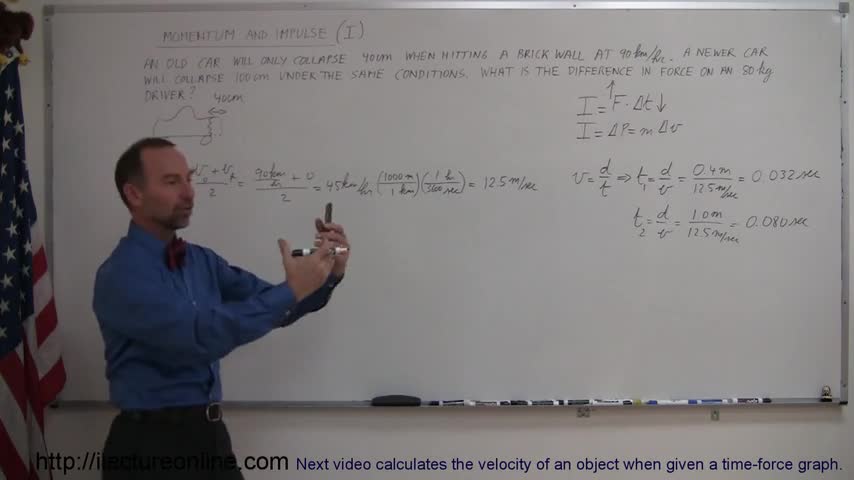 MOMENTUM AND IMPULSE (I)
AN OLD CAR WILL ONLY COLLAPSE 40cm WHEN HITTING A BRICK WALL AT 90 km/hr. A NEWER CAR
WILL COLLAPSE 100cm UNDER THE SAME CONDITIONS. WHAT IS THE DIFFERENCE IN FORCE ON AN 80 kg
DRIVER?
40cm
I = F · Δt ↓
↑
I = ΔP = m Δv
v₀ + v_f / 2 = 90 km/hr + 0 / 2 = 45 km/hr (1000 m / 1 km) (1 hr / 3600 sec) = 12.5 m/sec
v = d/t ⇒ t₁ = d/v = 0.4 m / 12.5 m/sec = 0.032 sec
t₂ = d/v = 1.0 m / 12.5 m/sec = 0.080 sec
http://ilectureonline.com Next video calculates the velocity of an object when given a time-force graph.